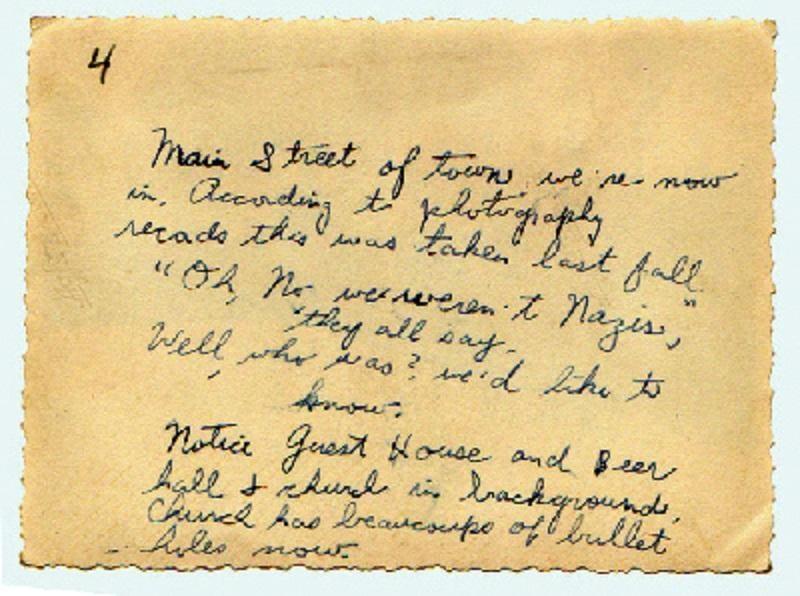 4
Main Street of town we're now
in. According to photography
recads this was taken last fall
"Oh, No we weren't Nazis,"
they all say.
Well, who was? we'd like to
know.
Notice Guest House and Beer
hall & church in background.
Church has beaucoups of bullet
holes now.